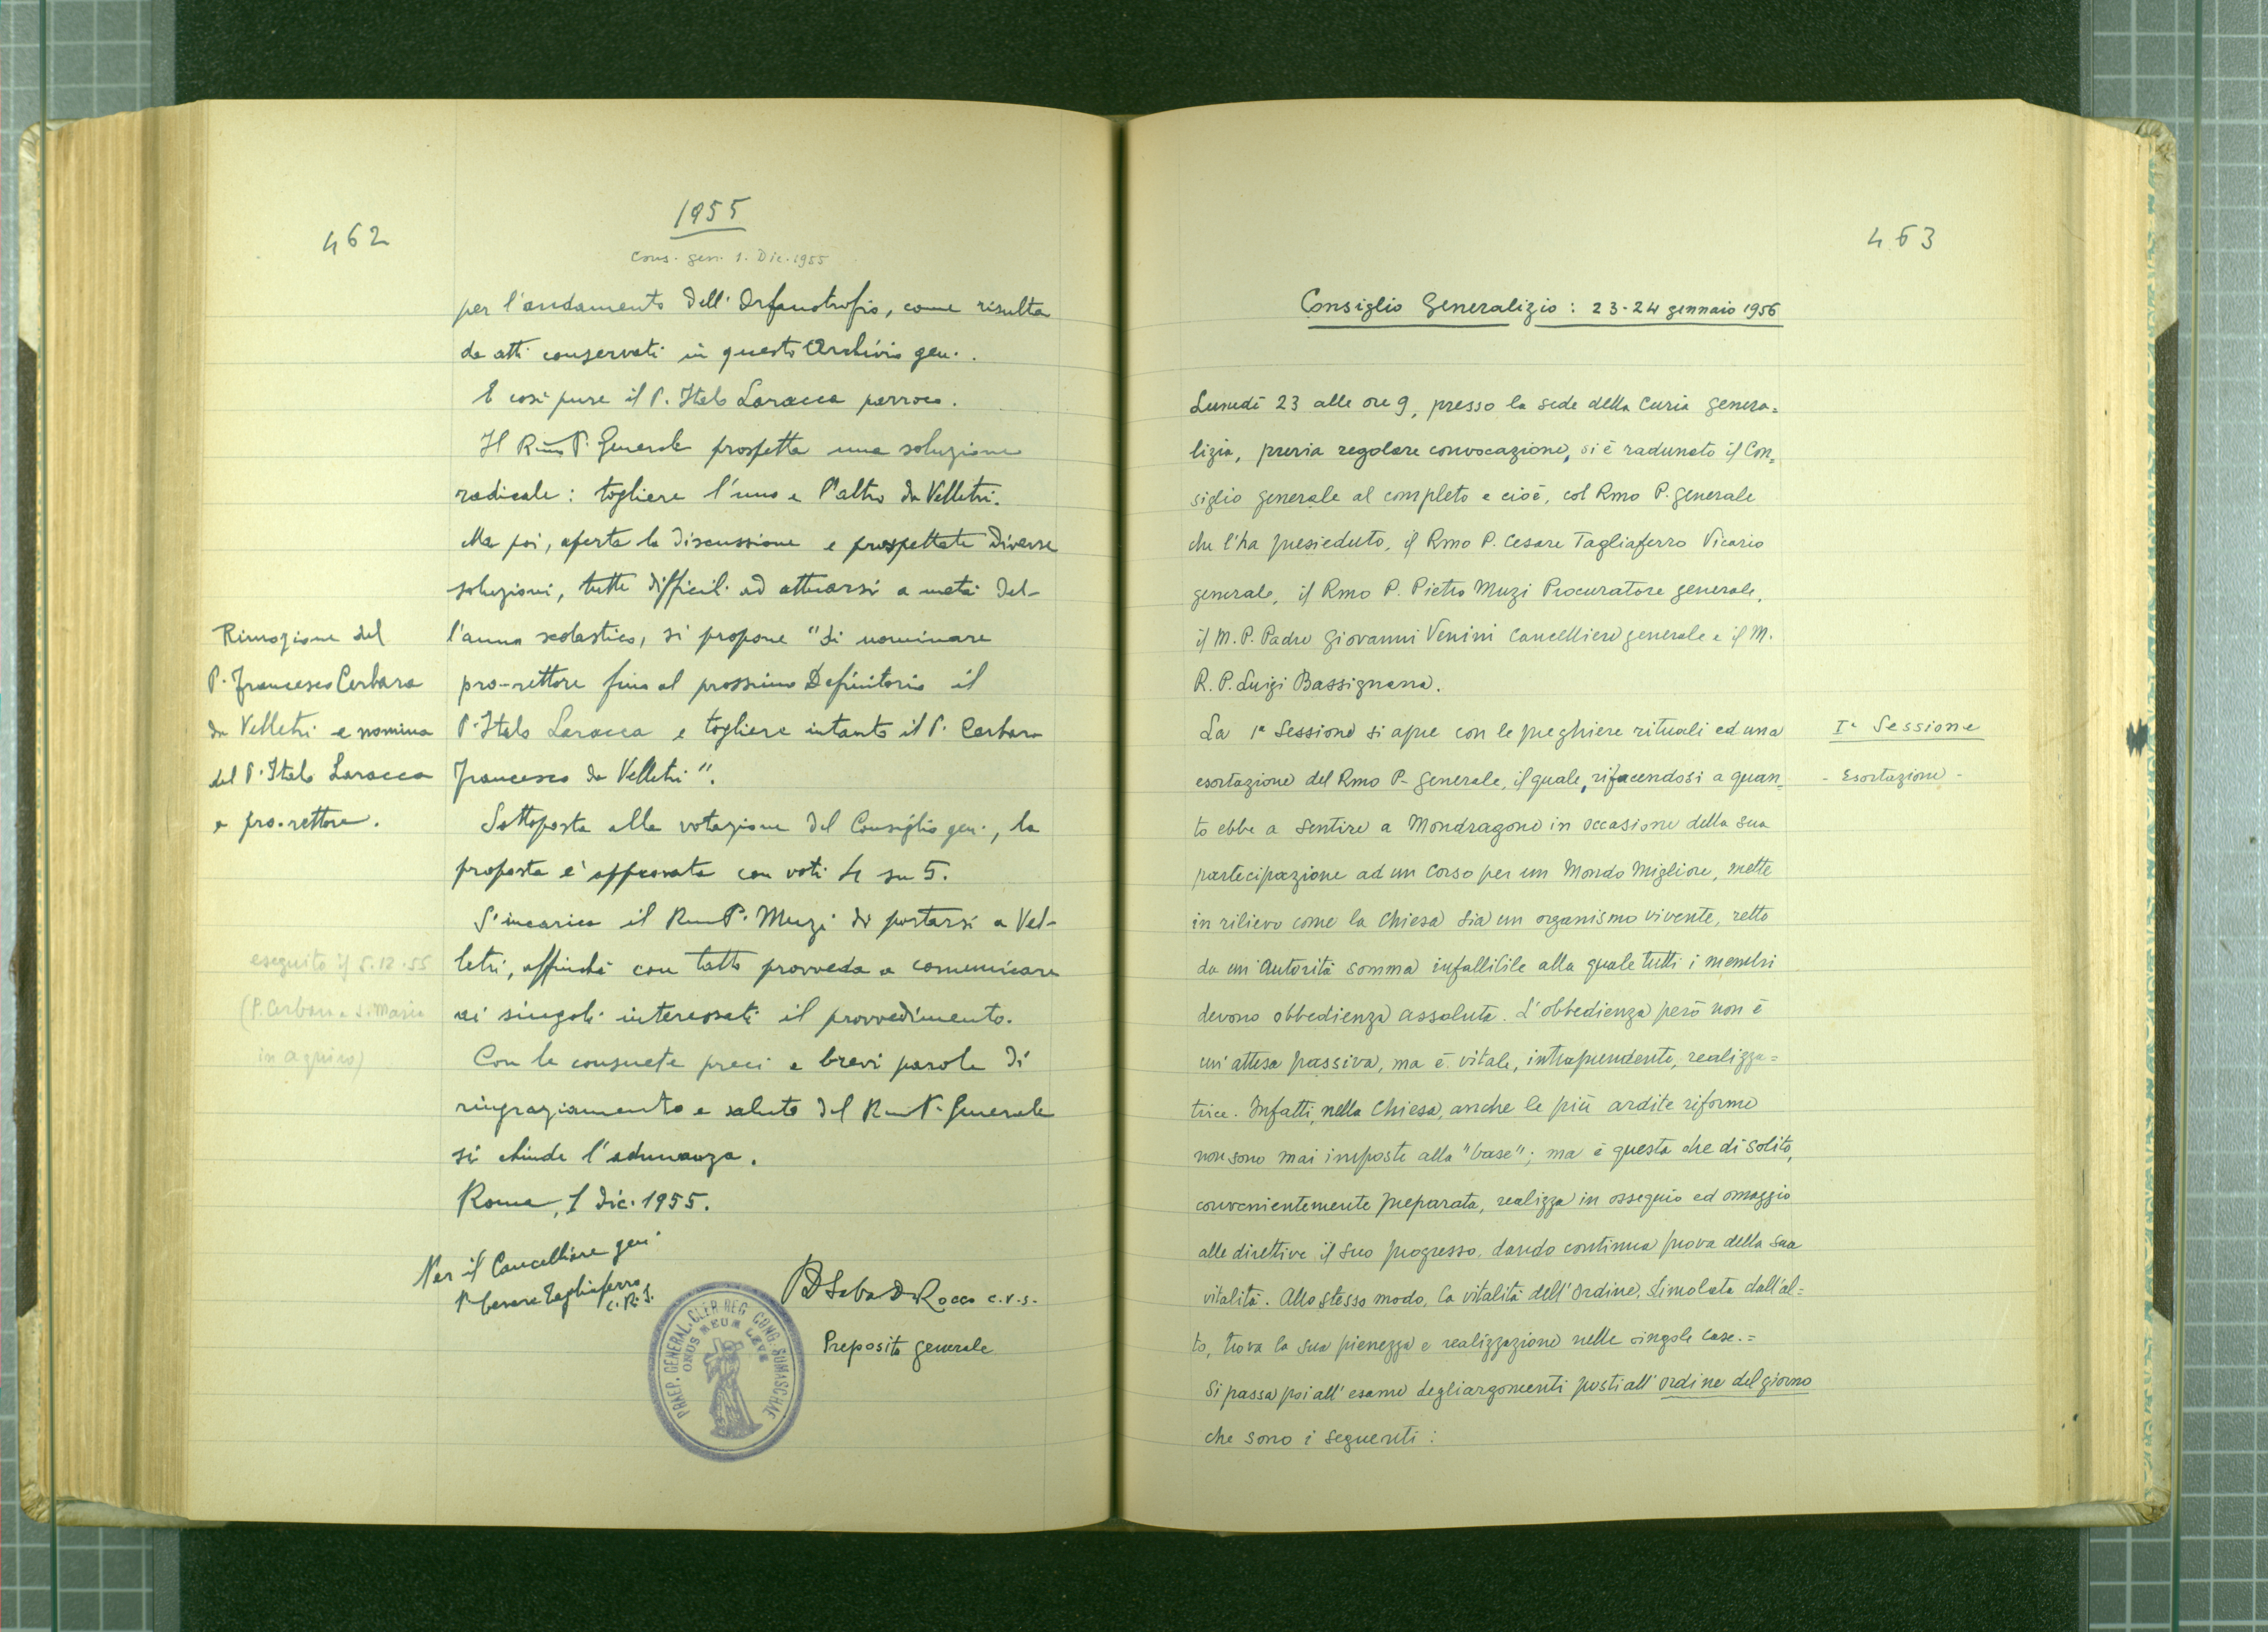 462
1955
Cons. gen. 1. Dic. 1955
per l'andamento dell'Orfanotrofio, come risulta
da atti conservati in questo Archivio gen..
E così pure il P. Italo Laracca parroco.
Il Rmo P. Generale prospetta una soluzione
radicale: togliere l'uno e l'altro da Velletri.
Ma poi, aperta la discussione e prospettate diverse
soluzioni, tutte difficili ad attuarsi a metà del-
l'anno scolastico, si propone "di nominare
pro-rettore fino al prossimo Definitorio il
P. Italo Laracca e togliere intanto il P. Cerbara
Francesco da Velletri".
Rimozione del
P. Francesco Cerbara
da Velletri e nomina
del P. Italo Laracca
a pro-rettore.
Sottoposta alla votazione del Consiglio gen., la
proposta è approvata con voti 4 su 5.
S'incarica il Rmo P. Muzi di portarsi a Vel-
letri, affinché con tatto provveda a comunicare
ai singoli interessati il provvedimento.
eseguito il 5.12.55
(P. Cerbara a S. Maria
in Aquiro)
Con le consuete preci e brevi parole di
ringraziamento e saluto del Rmo P. Generale
si chiude l'adunanza.
Roma, 1 dic. 1955.
Per il Cancelliere gen.
P. Cesare Tagliaferro
c. R. S.
P. D. Saba De Rocco c.r.s.
Preposito generale
PRAEP. GENERAL. CLER. REG. CONG. SUMASCHAE
ONUS MEUM LEVE
463
Consiglio Generalizio: 23-24 gennaio 1956
Lunedì 23 alle ore 9, presso la sede della Curia genera=
lizia, previa regolare convocazione, si è radunato il Con=
siglio generale al completo e cioè, col Rmo P. generale
che l'ha presieduto, il Rmo P. Cesare Tagliaferro Vicario
generale, il Rmo P. Pietro Muzi Procuratore generale,
il M. P. Padre Giovanni Venini Cancelliere generale e il M.
R. P. Luigi Bassignana.
La 1ª Sessione si apre con le preghiere rituali ed una
esortazione del Rmo P. Generale, il quale, rifacendosi a quan=
to ebbe a sentire a Mondragone in occasione della sua
partecipazione ad un Corso per un Mondo Migliore, mette
in rilievo come la Chiesa sia un organismo vivente, retto
da un'Autorità somma infallibile alla quale tutti i membri
devono obbedienza assoluta. L'obbedienza però non è
un'attesa passiva, ma è vitale, intraprendente, realizza=
trice. Infatti, nella Chiesa, anche le più ardite riforme
non sono mai imposte alla "base"; ma è questa che di solito,
convenientemente preparata, realizza in ossequio ed omaggio
alle direttive il suo progresso, dando continua prova della sua
vitalità. Allo stesso modo, la vitalità dell'Ordine, stimolata dall'al=
to, trova la sua pienezza e realizzazione nelle singole Case.=
Si passa poi all'esame degli argomenti posti all'ordine del giorno
che sono i seguenti:
Iª Sessione
- Esortazione -